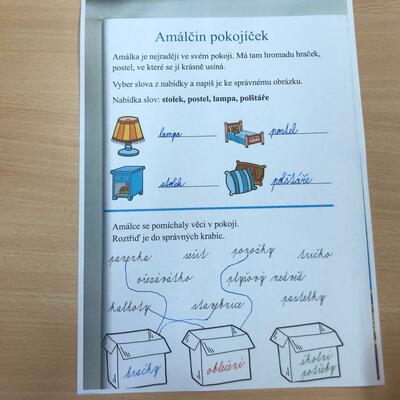 Amálčin pokojíček
Amálka je nejraději ve svém pokoji. Má tam hromadu hraček,
postel, ve které se jí krásně usíná.
Vyber slova z nabídky a napiš je ke správnému obrázku.
Nabídka slov: stolek, postel, lampa, polštáře
lampa postel
stolek polštáře
Amálce se pomíchaly věci v pokoji.
Roztřiď je do správných krabic.
panenka sešit ponožky tričko
ořezávátko plyšový medvěd
kalhoty stavebnice pastelky
hračky oblečení školní
potřeby